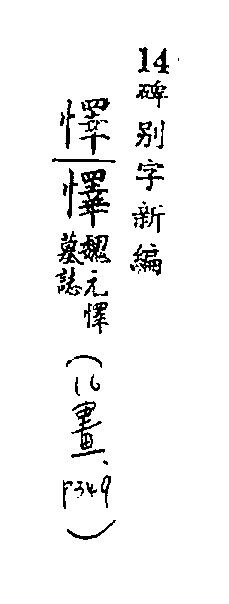 14碑別字新編
懌
懌魏元懌墓誌(16畫、P349)